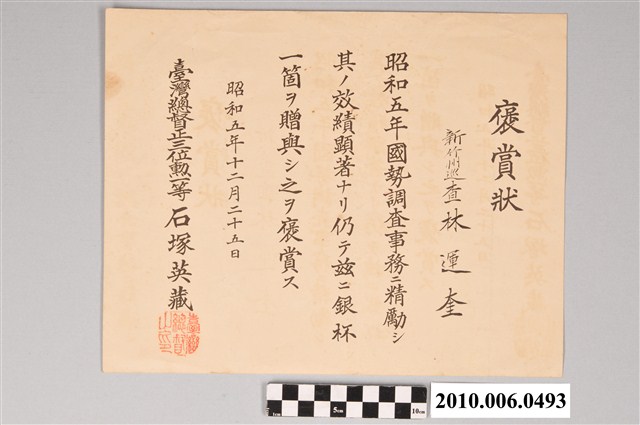 褒賞狀
新竹州巡查 林運奎
昭和五年國勢調查事務ニ精勵シ
其ノ效績顯著ナリ仍テ玆ニ銀杯
一箇ヲ贈與シ之ヲ褒賞ス
昭和五年十二月二十五日
臺灣總督正三位勳一等 石塚英藏
5cm
10cm
2010.006.0493